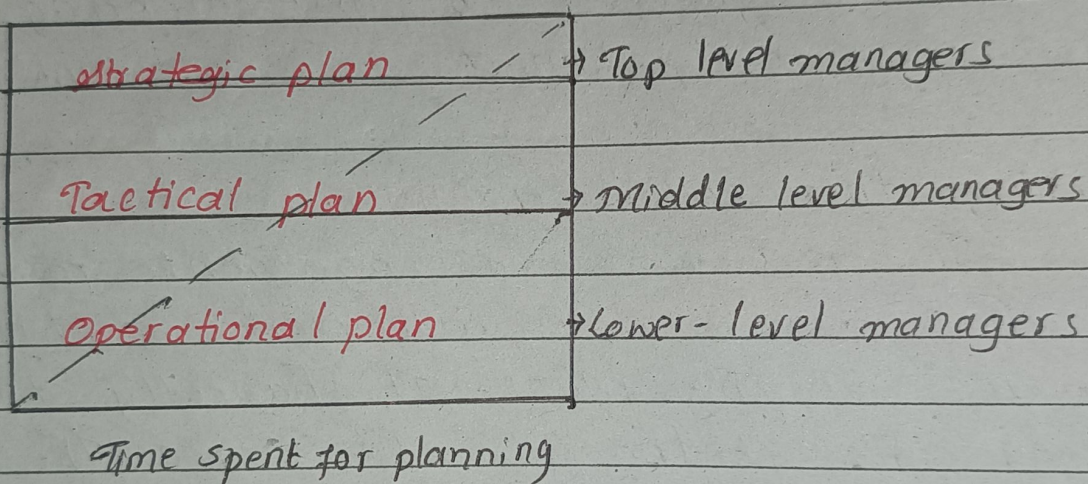 Strategic plan → Top level managers
Tactical plan → Middle level managers
Operational plan → Lower-level managers
Time spent for planning